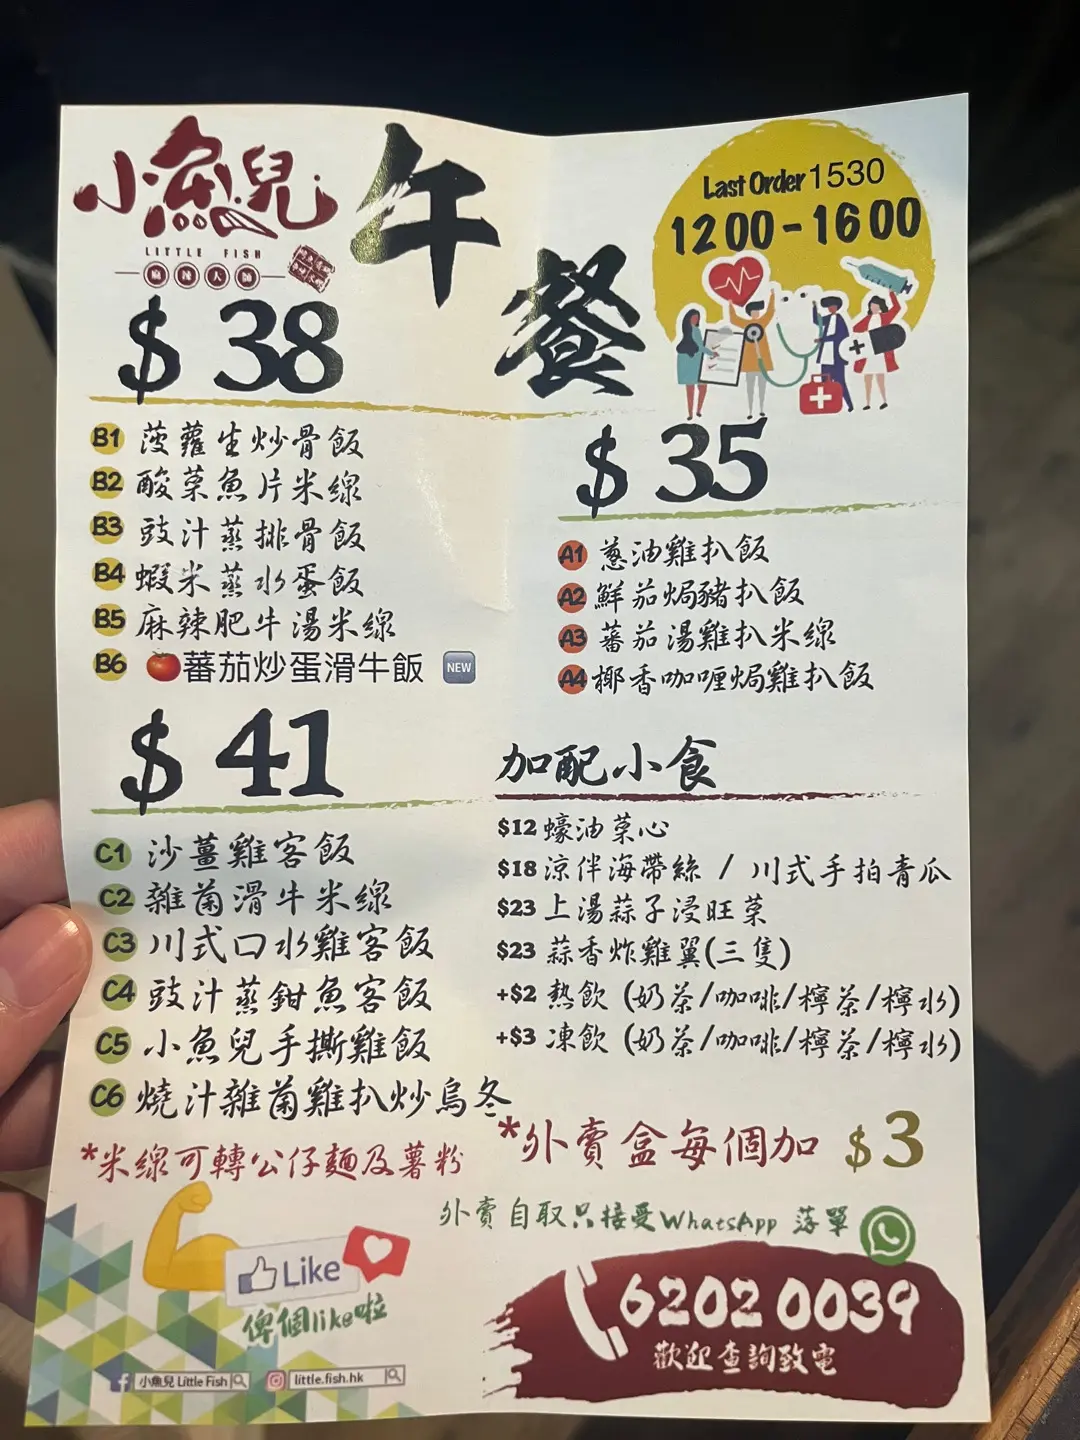 小魚兒
LITTLE FISH
麻辣大師
午餐
Last Order 1530
1200-1600
$38
B1 菠蘿生炒骨飯
B2 酸菜魚片米線
B3 豉汁蒸排骨飯
B4 蝦米蒸水蛋飯
B5 麻辣肥牛湯米線
B6 🍅蕃茄炒蛋滑牛飯 NEW
$35
A1 蔥油雞扒飯
A2 鮮茄焗豬扒飯
A3 蕃茄湯雞扒米線
A4 椰香咖喱焗雞扒飯
$41
C1 沙薑雞客飯
C2 雜菌滑牛米線
C3 川式口水雞客飯
C4 豉汁蒸鉗魚客飯
C5 小魚兒手撕雞飯
C6 燒汁雜菌雞扒炒烏冬
*米線可轉公仔麵及薯粉
加配小食
$12 蠔油菜心
$18 涼伴海帶絲 / 川式手拍青瓜
$23 上湯蒜子浸旺菜
$23 蒜香炸雞翼(三隻)
+$2 熱飲 (奶茶/咖啡/檸茶/檸水)
+$3 凍飲 (奶茶/咖啡/檸茶/檸水)
*外賣盒每個加 $3
外賣自取只接受WhatsApp 落單
6202 0039
歡迎查詢致電
Like
俾個like啦
小魚兒 Little Fish
little.fish.hk